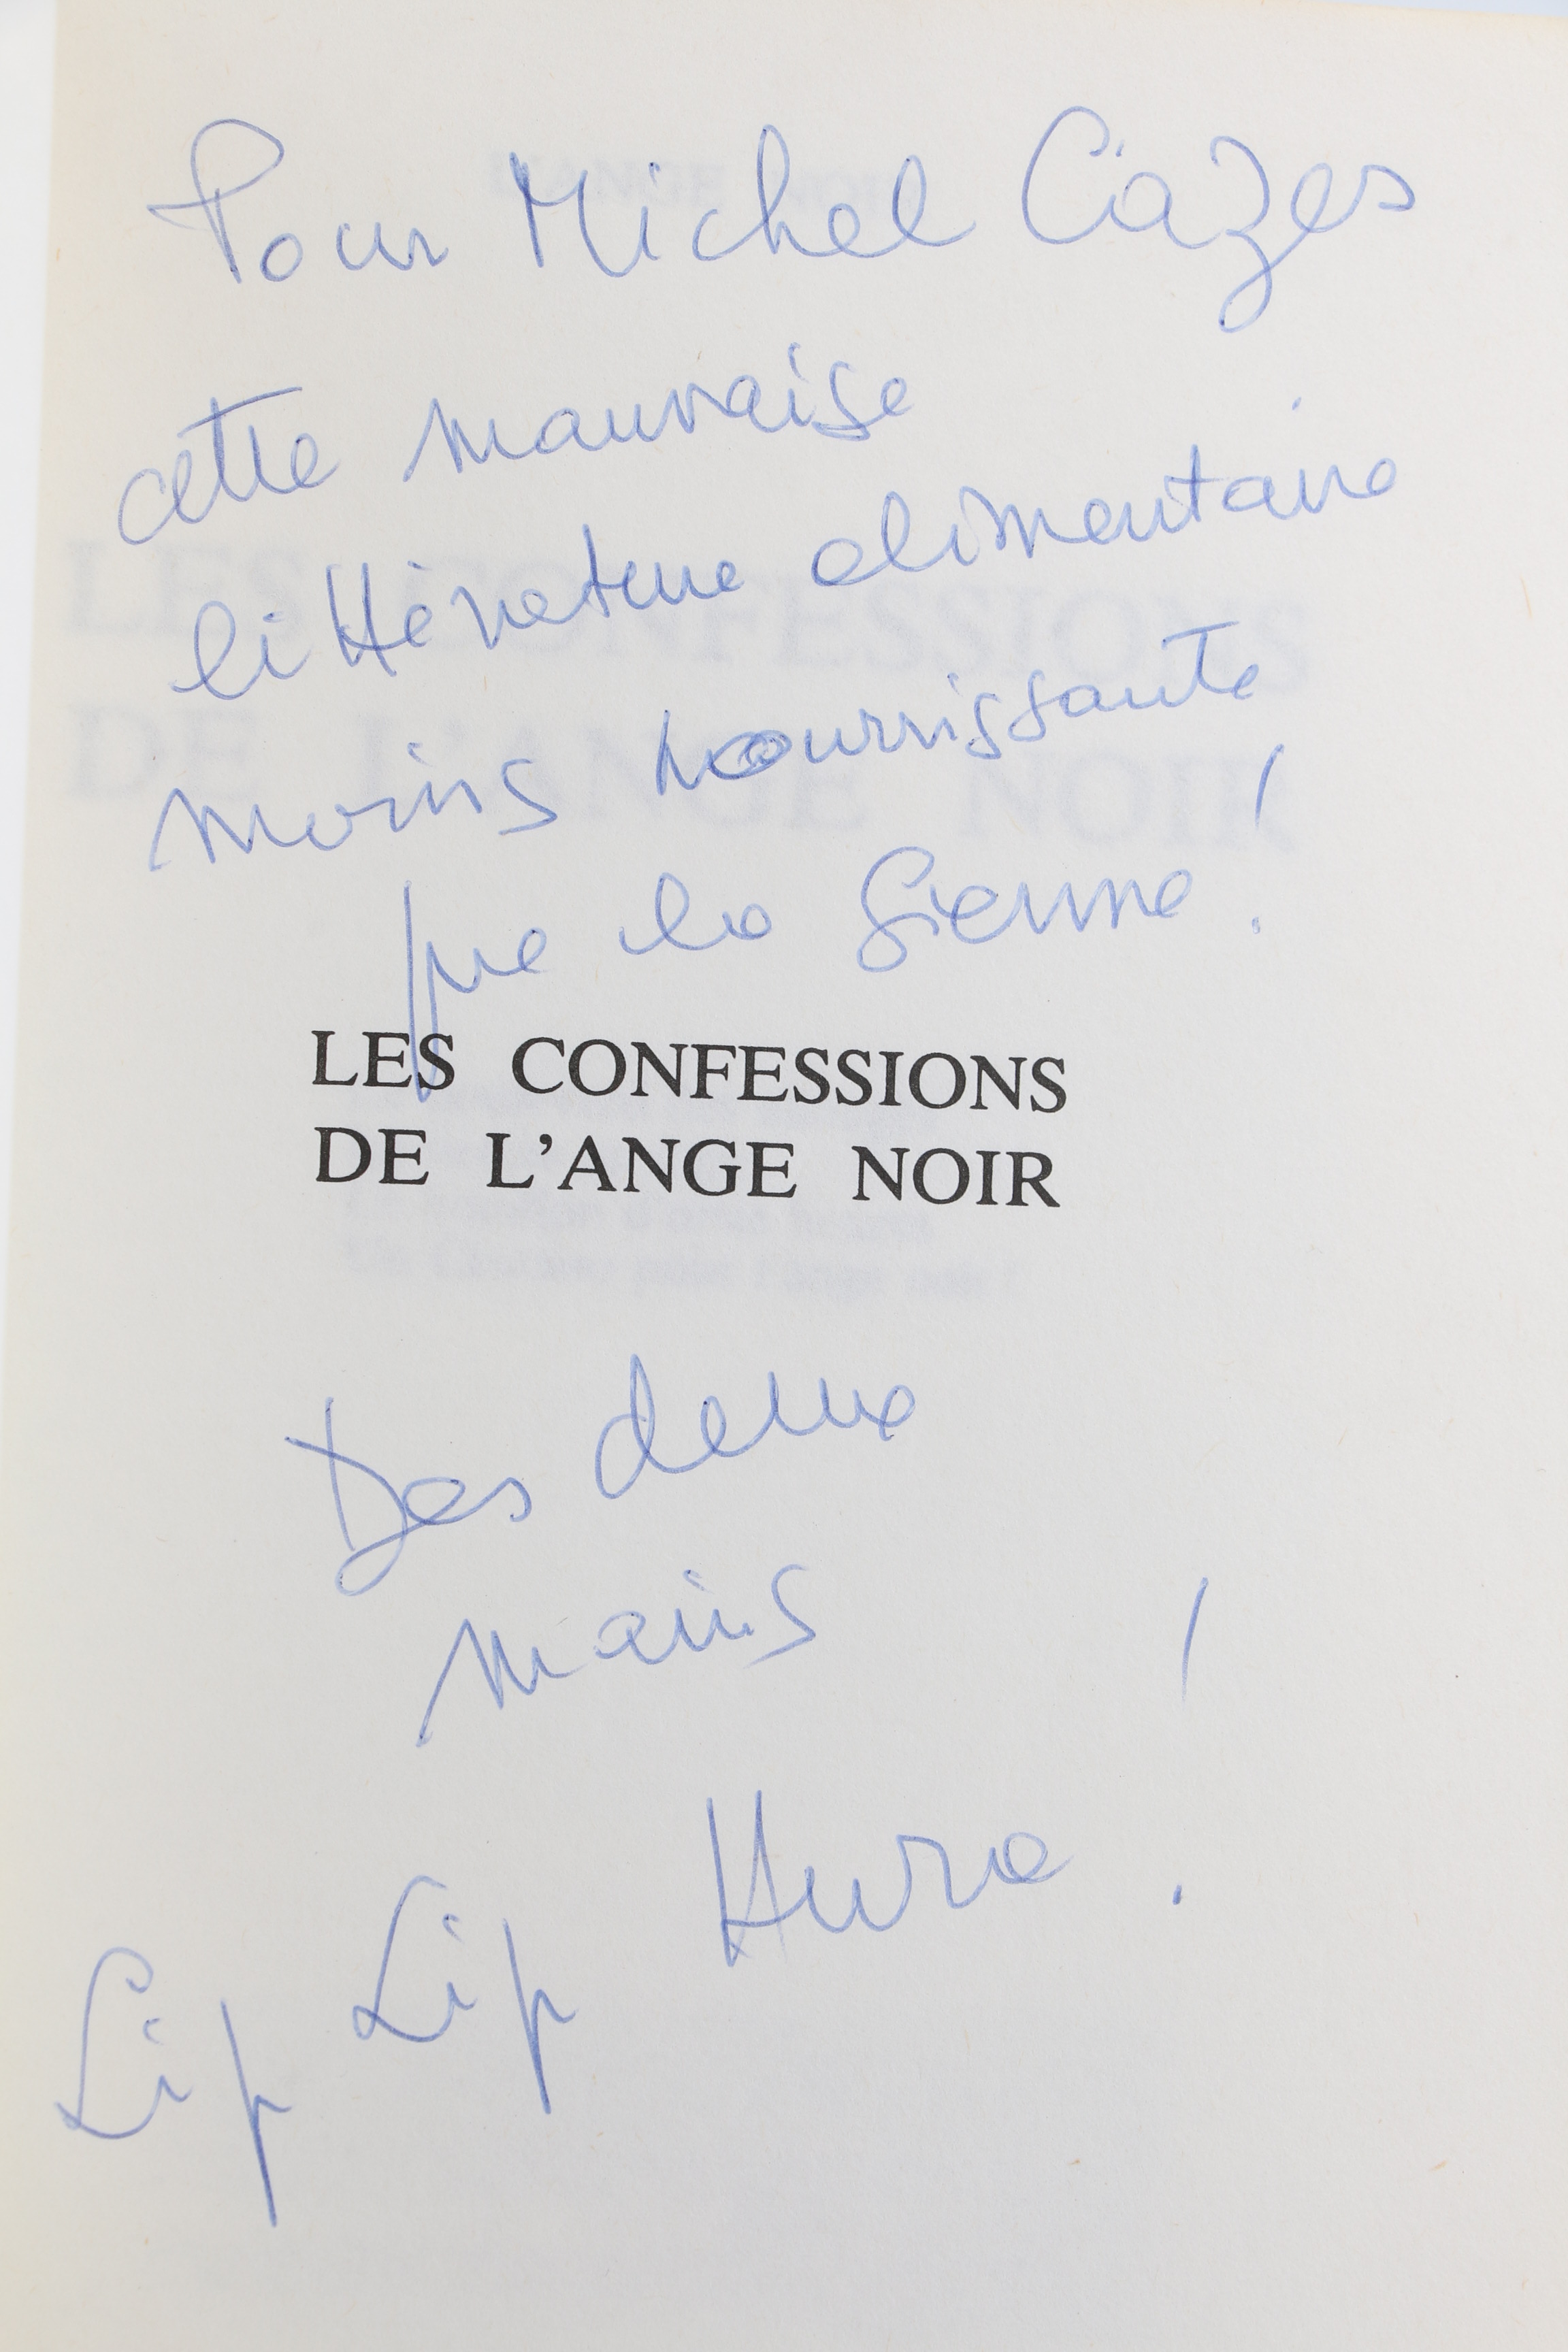 Pour Michel Cazes
cette mauvaise
littérature alimentaire
moins nourrissante
que la sienne !
LES CONFESSIONS
DE L'ANGE NOIR
Des deux
mains
Lip Lip Hurra !